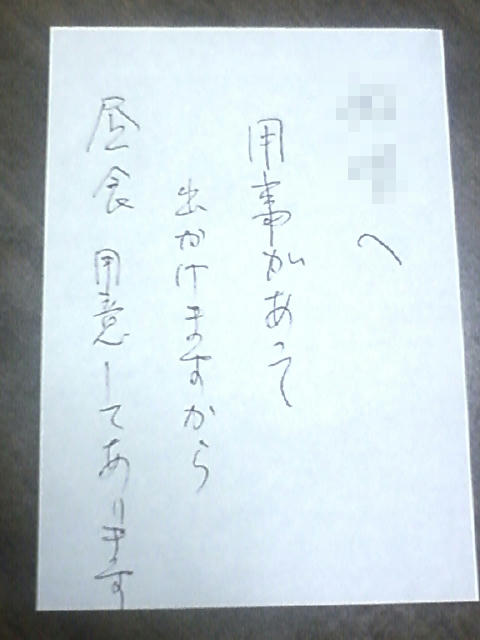 へ
用事があって
出かけますから
昼食 用意してあります